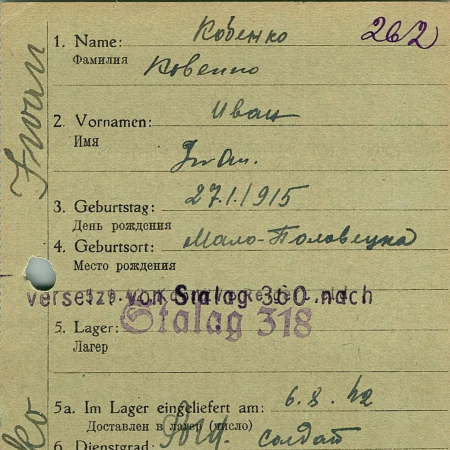 262
1. Name: Ковенко
Фамилия Kovenko
2. Vornamen: Иван
Имя
Iwan.
3. Geburtstag: 27.1.1915
День рождения
4. Geburtsort: Мало-Половецка
Место рождения
versetzt von Stalag 360 nach
Stalag 318
5. Lager:
Лагерь
5a. Im Lager eingeliefert am: 6.8.42
Доставлен в лагерь (число)
6. Dienstgrad: солдат
Iwan
ko